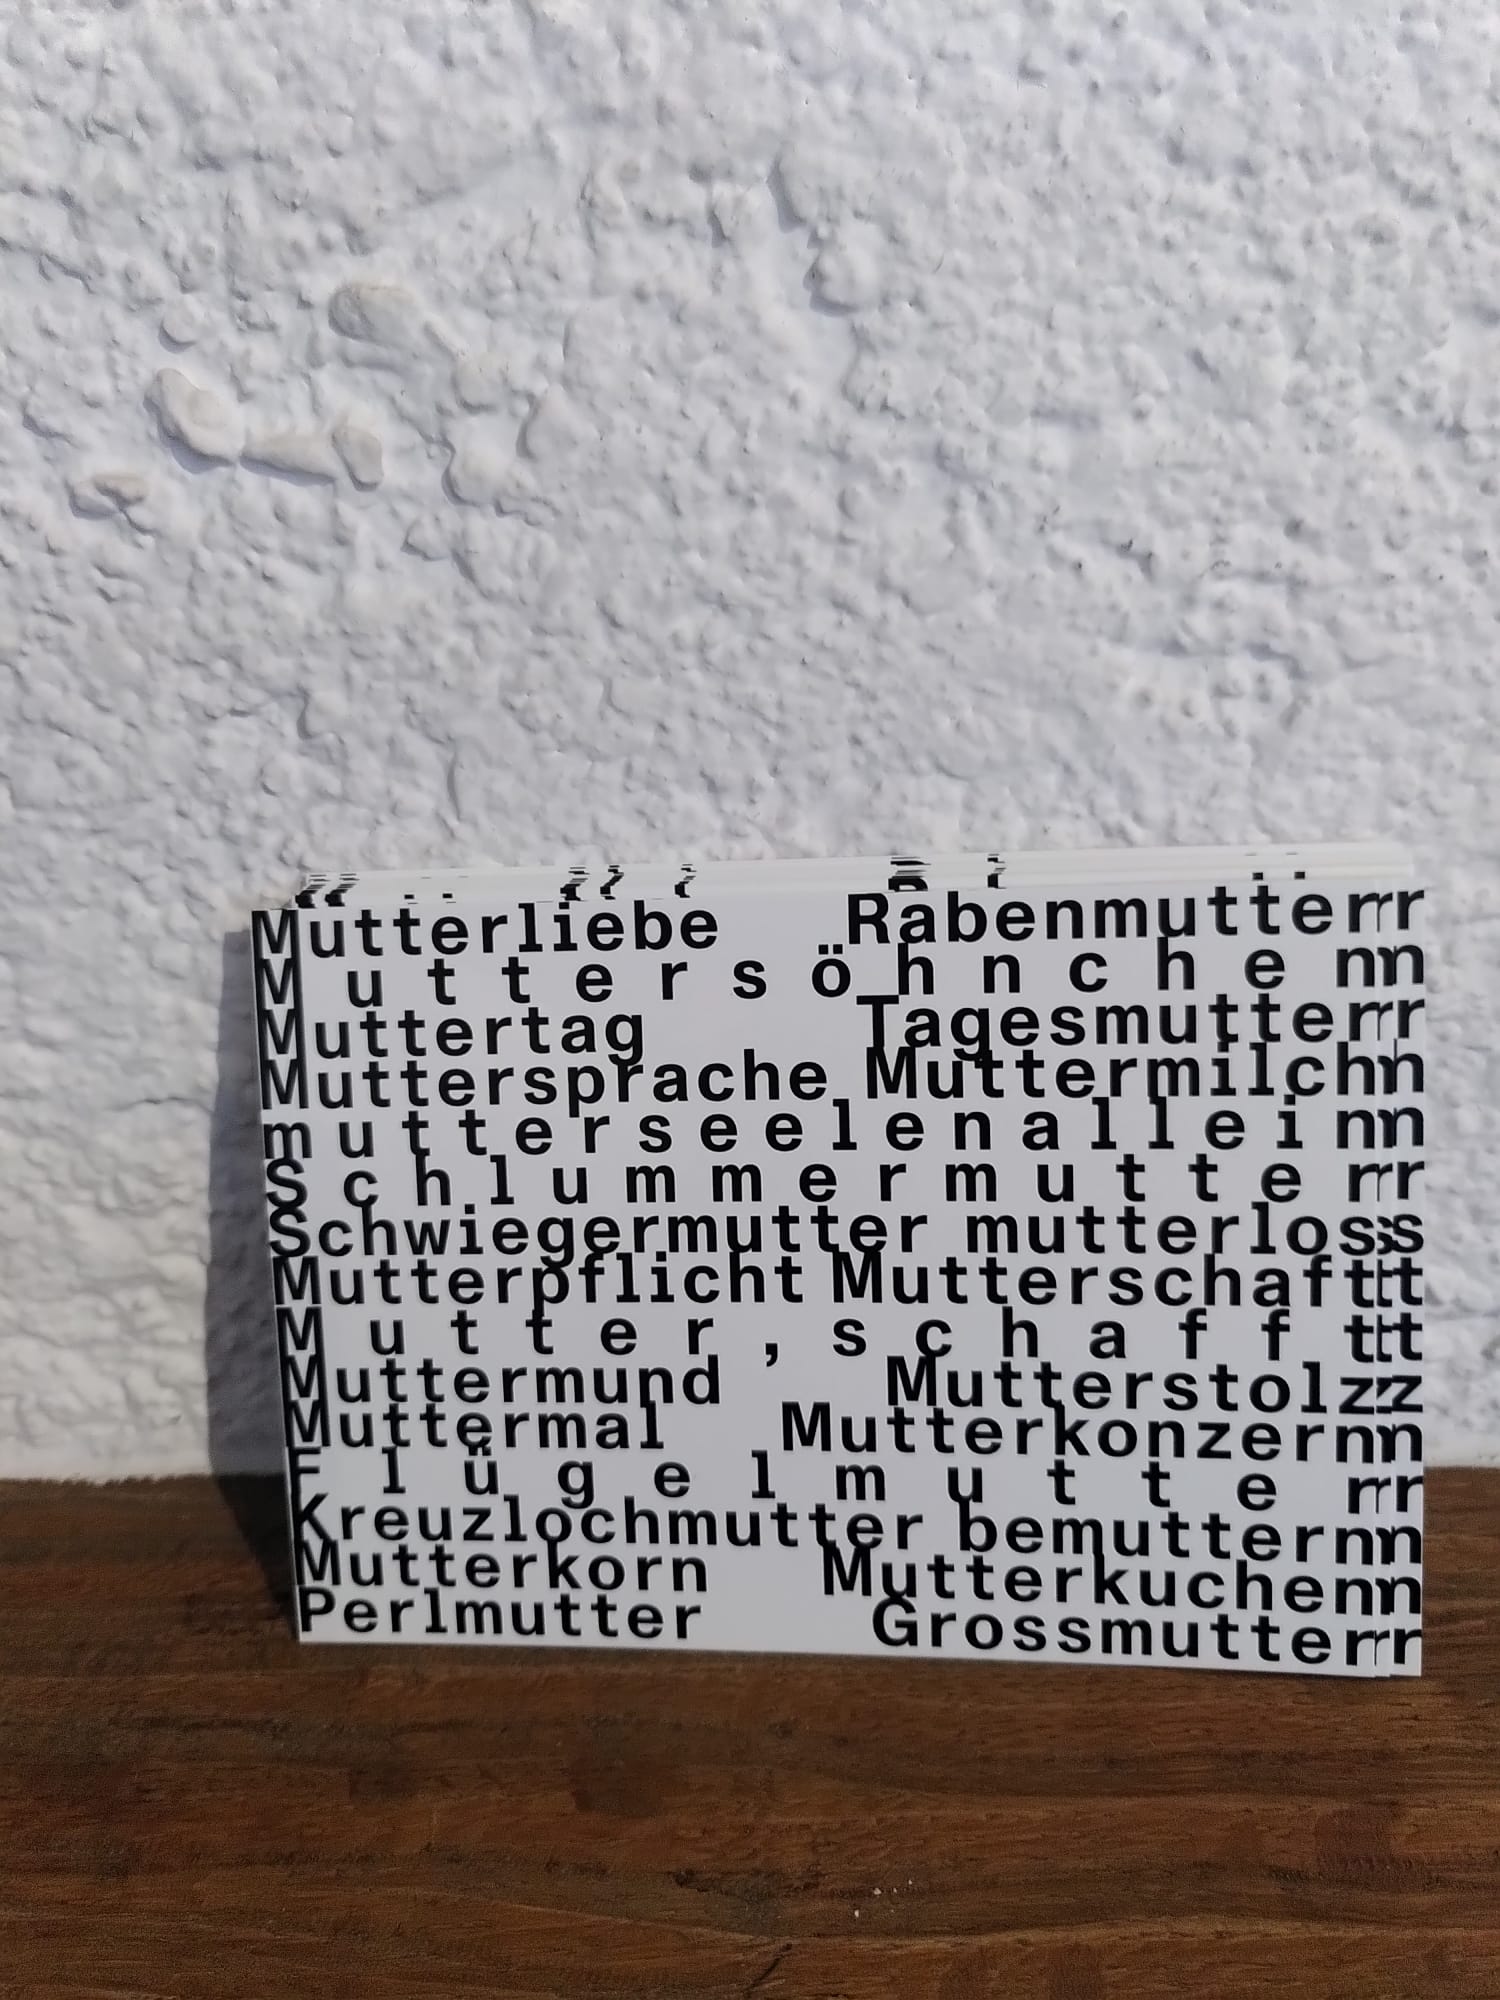 Mutterliebe Rabenmutter
Muttersöhnchen
Muttertag Tagesmutter
Muttersprache Muttermilch
mutterseelenallein
Schlummermutter
Schwiegermutter mutterlos
Mutterpflicht Mutterschaft
Mutter, schafft
Muttermund Mutterstolz
Muttermal Mutterkonzern
Flügelmutter
Kreuzlochmutter bemuttern
Mutterkorn Mutterkuchen
Perlmutter Grossmutter